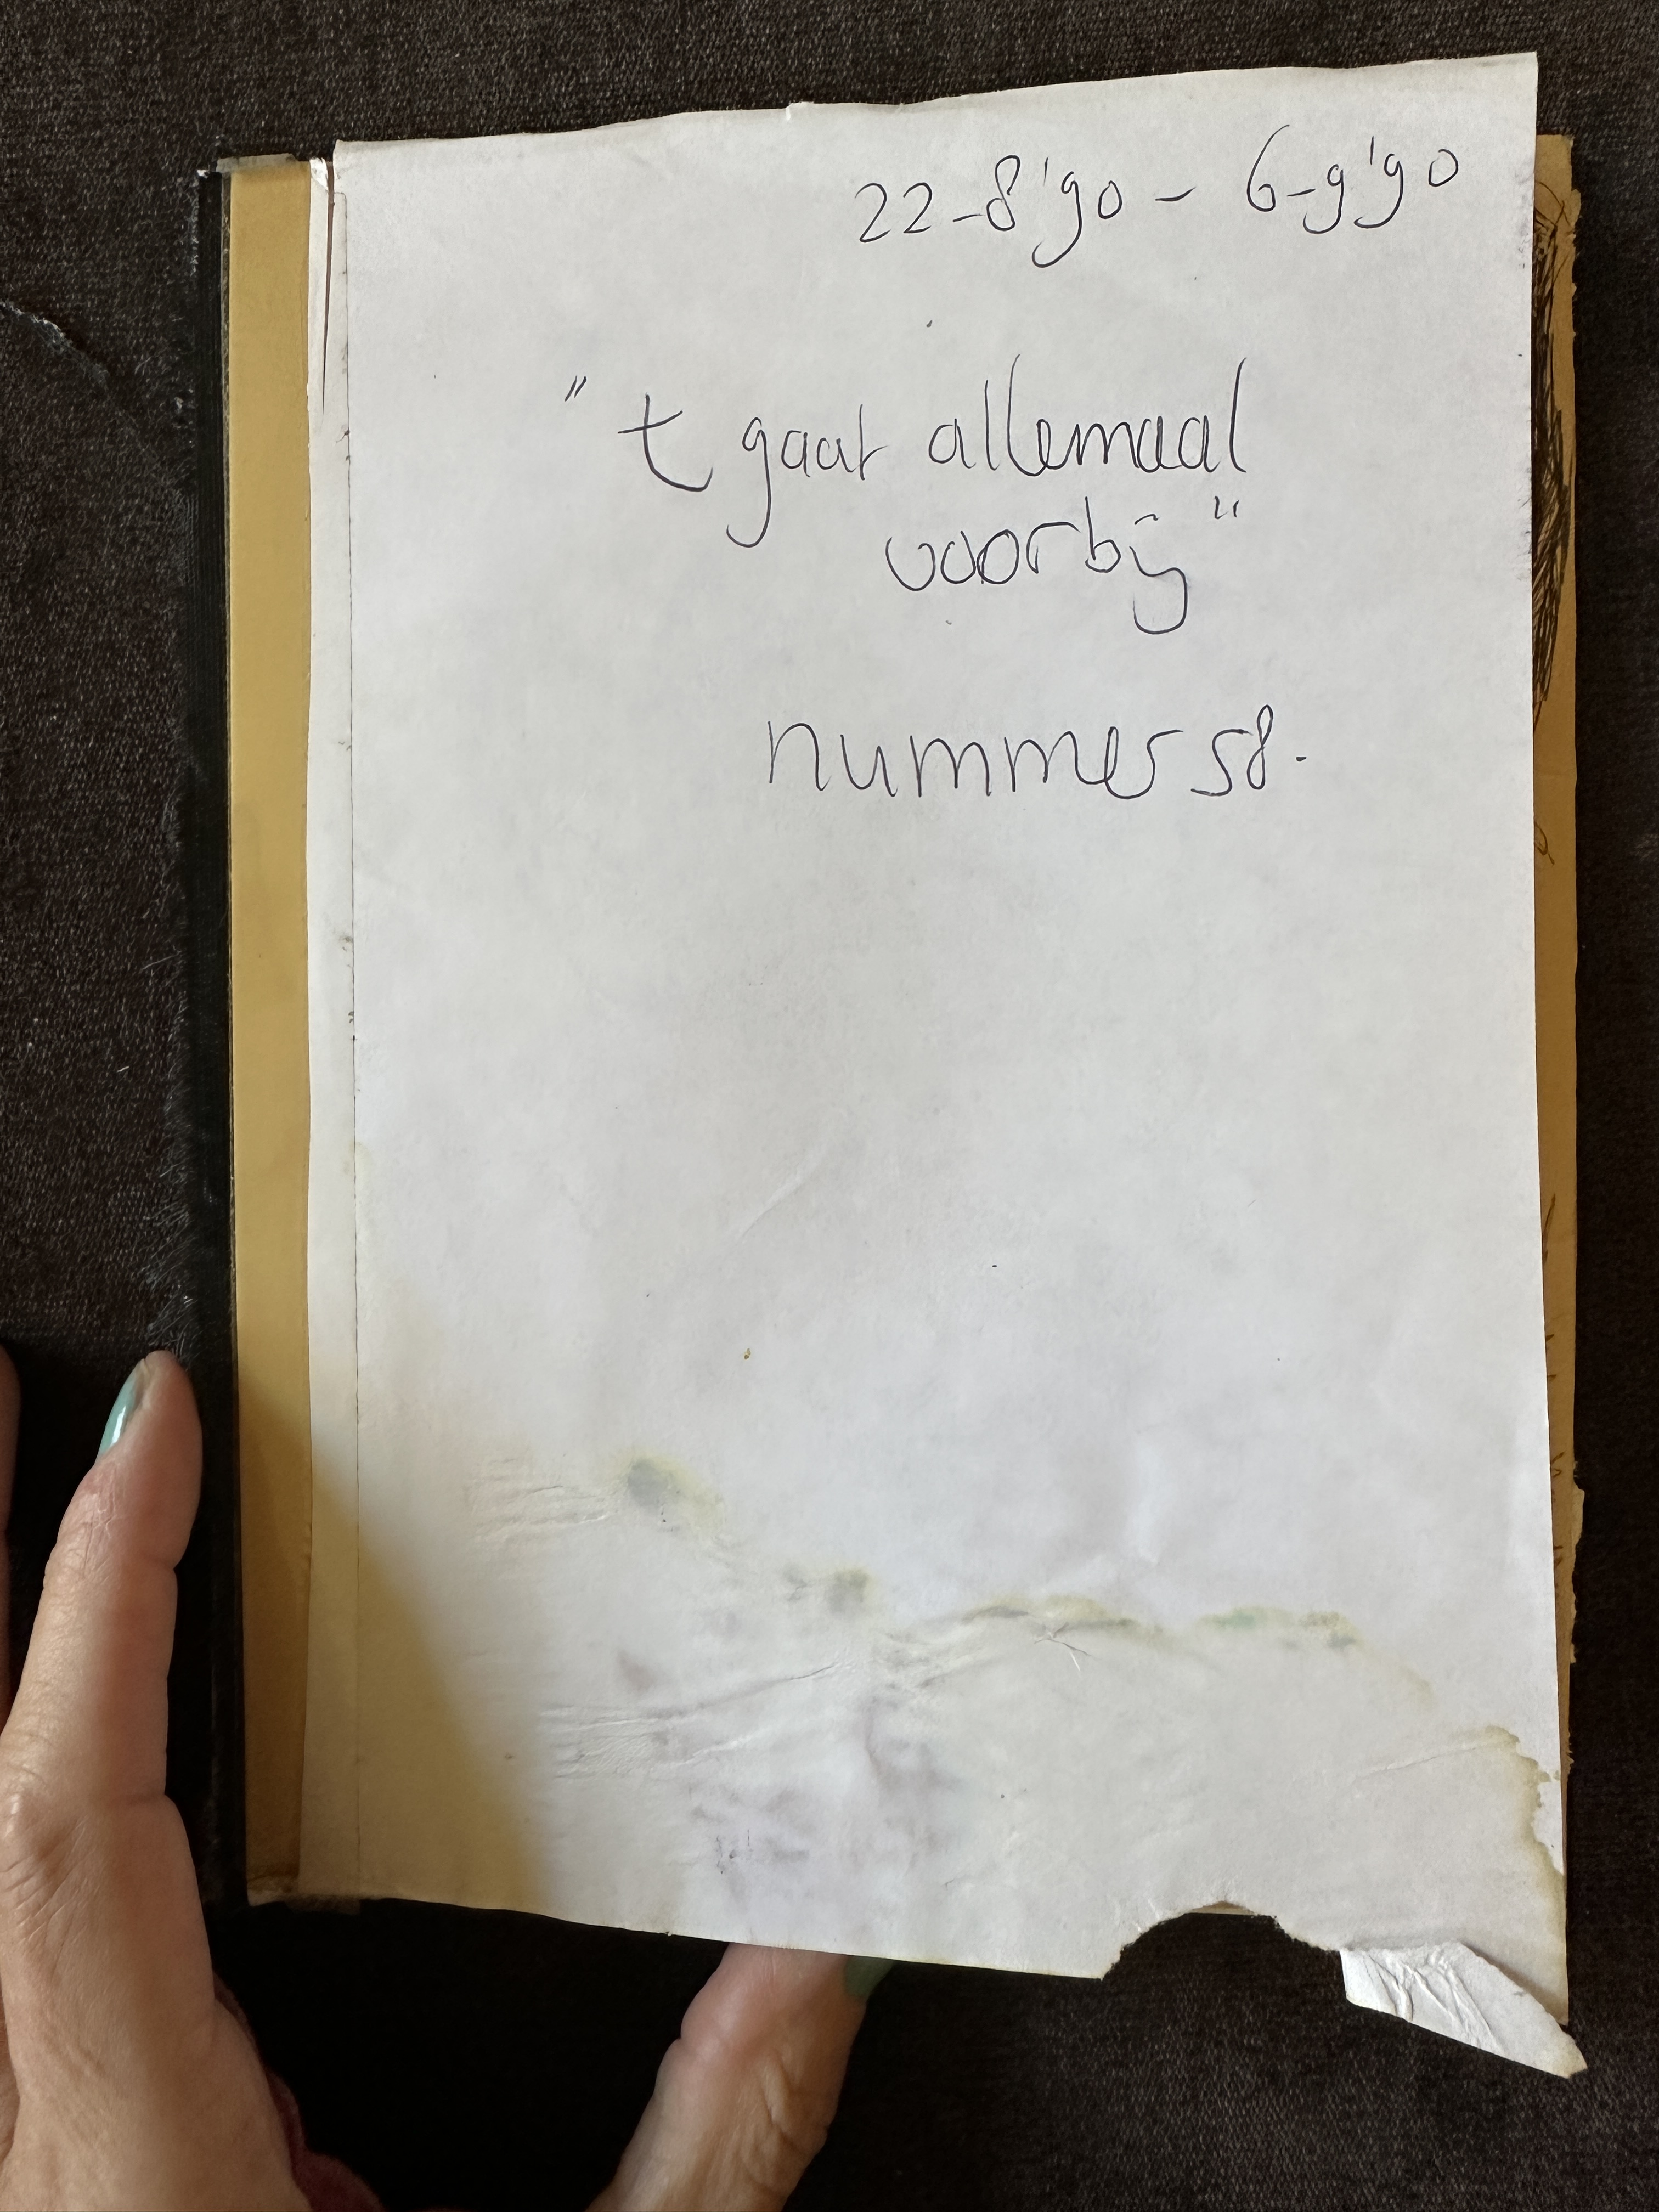 22-8'90 - 6-9'90
"t gaat allemaal
voorbij"
nummer 58.